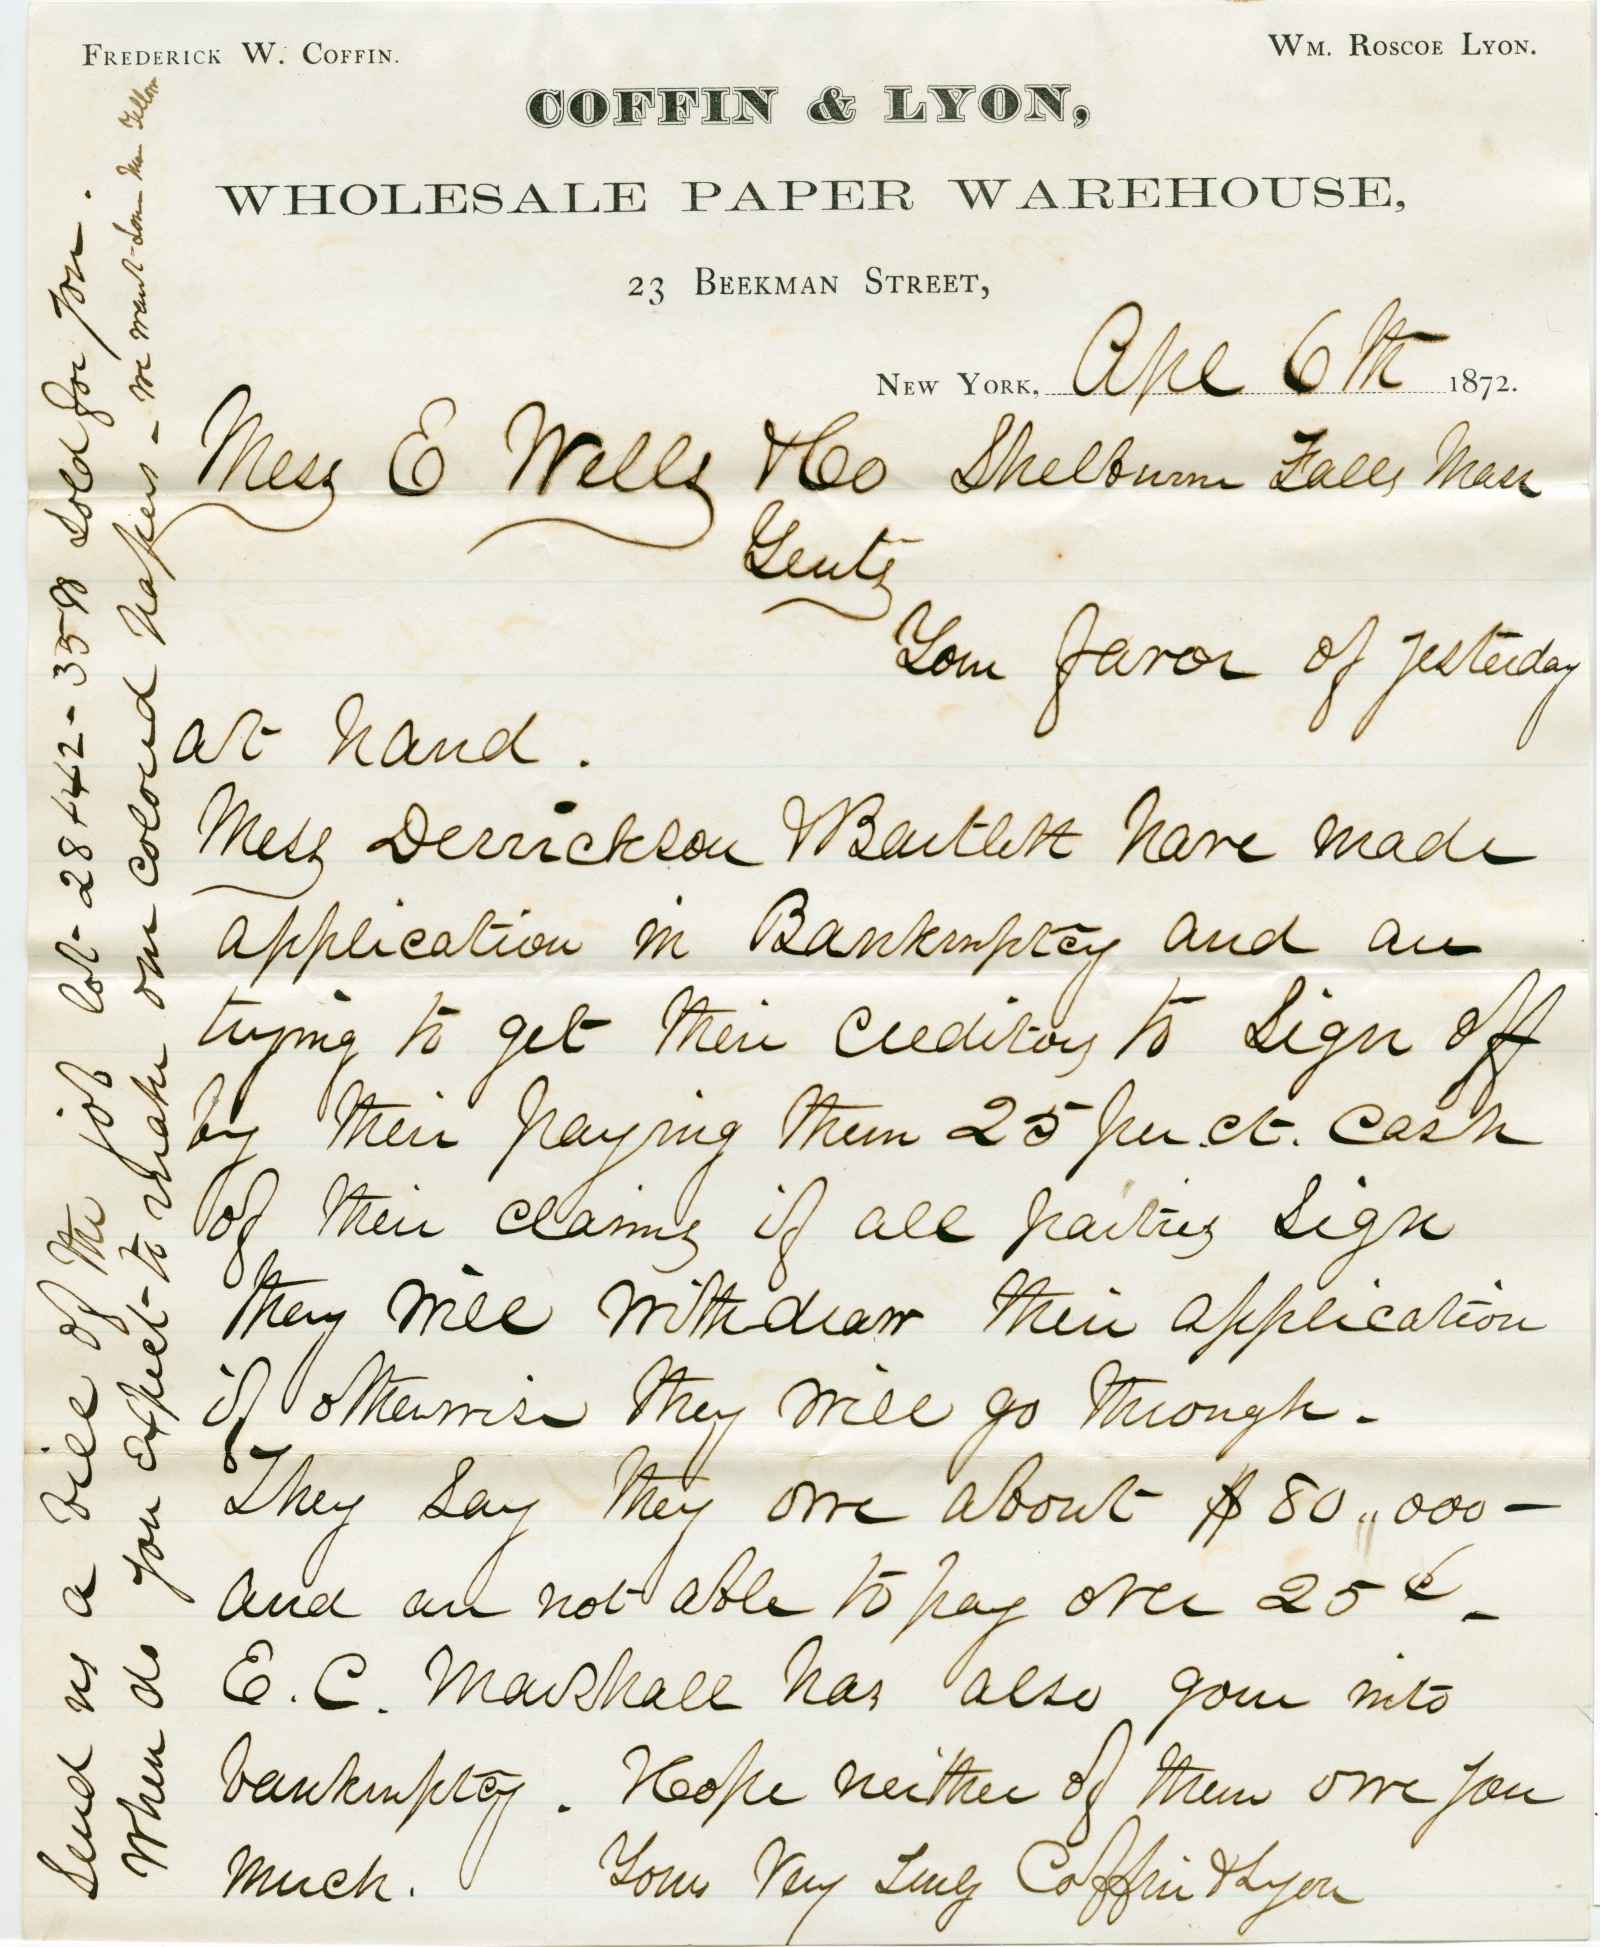 FREDERICK W. COFFIN.
WM. ROSCOE LYON.
COFFIN & LYON,
WHOLESALE PAPER WAREHOUSE,
23 BEEKMAN STREET,
NEW YORK, Apl 6th 1872.
Mess E Wells & Co Shelburne Falls Mass
Gents
Your favor of yesterday
at hand.
Mess Derrickson & Bartlett have made
application in Bankruptcy and are
trying to get their creditors to sign off
by their paying them 25 per.ct. cash
of their claims if all parties sign
they will withdraw their application
if otherwise they will go through.-
They say they owe about $80,,000-
and are not able to pay over 25¢-
E. C. Marshall has also gone into
bankruptcy. Hope neither of them owe you
much. Yours Very Truly Coffin & Lyon
Send us a bill of the job lot- 28+42-35# sold for you.
When do you expect to make our colored papers- we want some Yellow